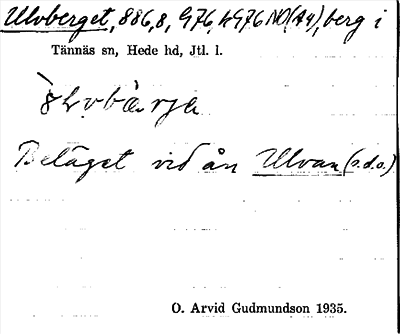 Ulvberget, 886,8, G76, kG76 NO(A4), berg i
Tännäs sn, Hede hd, Jtl. l.
Beläget vid ån Ulvan (s.d.o.)
O. Arvid Gudmundson 1935.